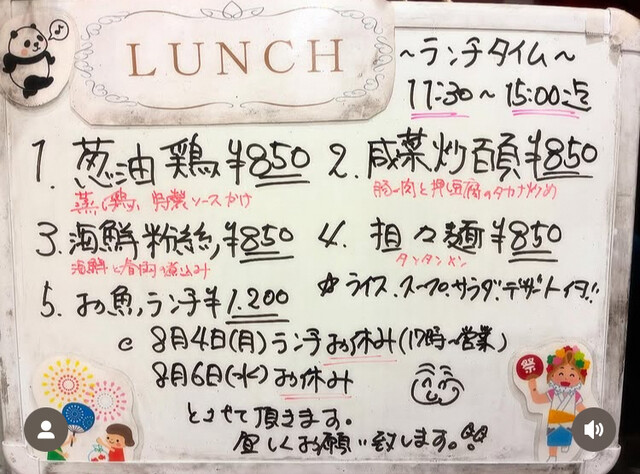 LUNCH
～ランチタイム～
11:30～15:00迄
1. 葱油鶏 ¥850
蒸し鶏の特製ソースかけ
2. 咸菜炒百頁 ¥850
豚肉と押豆腐のタカナ炒め
3. 海鮮粉絲 ¥850
海鮮と春雨煮込み
4. 担々麺 ¥850
タンタンメン
5. お魚ランチ ¥1.200
☆ライス.スープ.サラダ.デザート付
8月4日(月)ランチお休み(17時〜営業)
8月6日(水)お休み
とさせて頂きます。
宜しくお願い致します。
祭